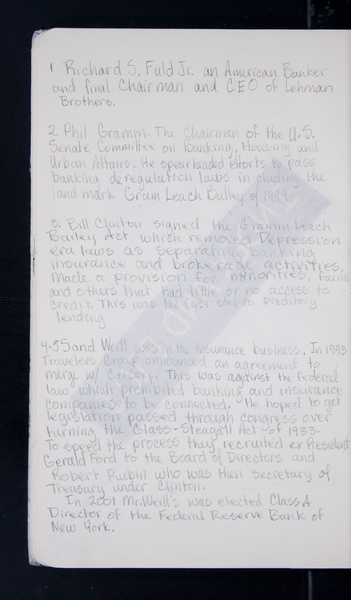 1 Richard S. Fuld Jr. an American Banker
and final Chairman and CEO of Lehman
Brothers.
2. Phil Gramm - The Chairman of the U.S.
Senate Committee on Banking, Housing and
Urban Affairs. He spearheaded efforts to pass
banking deregulation laws including the
land mark Gram Leach Bailey of 1999
3. Bill Clinton signed the Gramm Leach
Bailey Act which removed Depression
era laws as separating banking
insurance and brokerage activities.
Made a provision for minorities, farms
and others that had little or no access to
credit. This was the first step to preditory
lending
4.55 and Weill was in the insurance business. In 1993
Travelers Group announced an agreement to
merge w/ Citicorp. This was against the federal
law which prohibited banking and insurance
companies to be connected. He hoped to get
legislation passed through congress over
turning the Glass-Steagall Act of 1933.
To speed the process they recruited ex President
Gerald Ford to the Board of Directors and
Robert Rubin who was then secretary of
Treasury under Clinton.
In 2001 Mr. Weill's was elected Class A
Director of the Federal Reserve Bank of
New York.